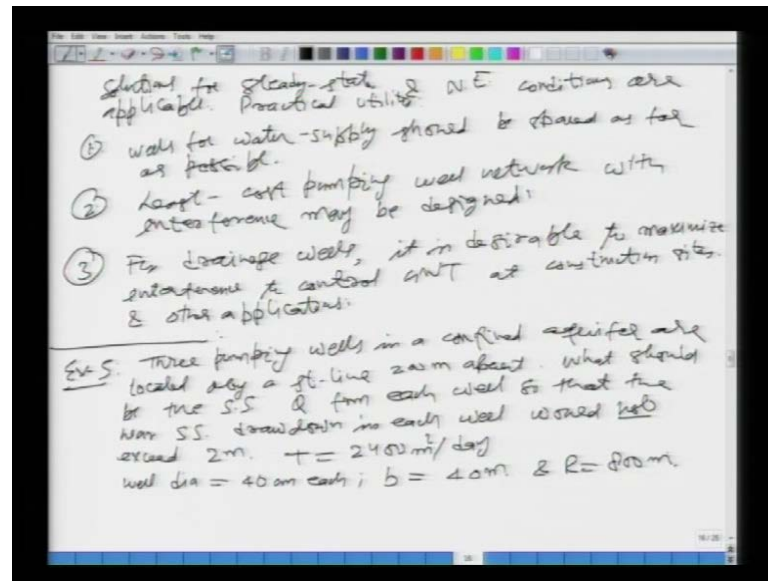 File Edit View Insert Actions Tools Help
solutions for steady-state & N.E. conditions are
applicable. Practical utility:
① wells for water-supply should be spaced as far
as possible.
② Least-cost pumping well network with
interference may be designed.
③ For drainage wells, it is desirable to maximize
interference to control GWT at construction sites
& other applications.
Ex-5. Three pumping wells in a confined aquifer are
located along a st-line 200m apart. What should
be the S.S. Q from each well so that the
S.S. drawdown in each well would not
exceed 2m. T = 2400 m²/day
well dia = 40 cm each; b = 40m & R = 800m.